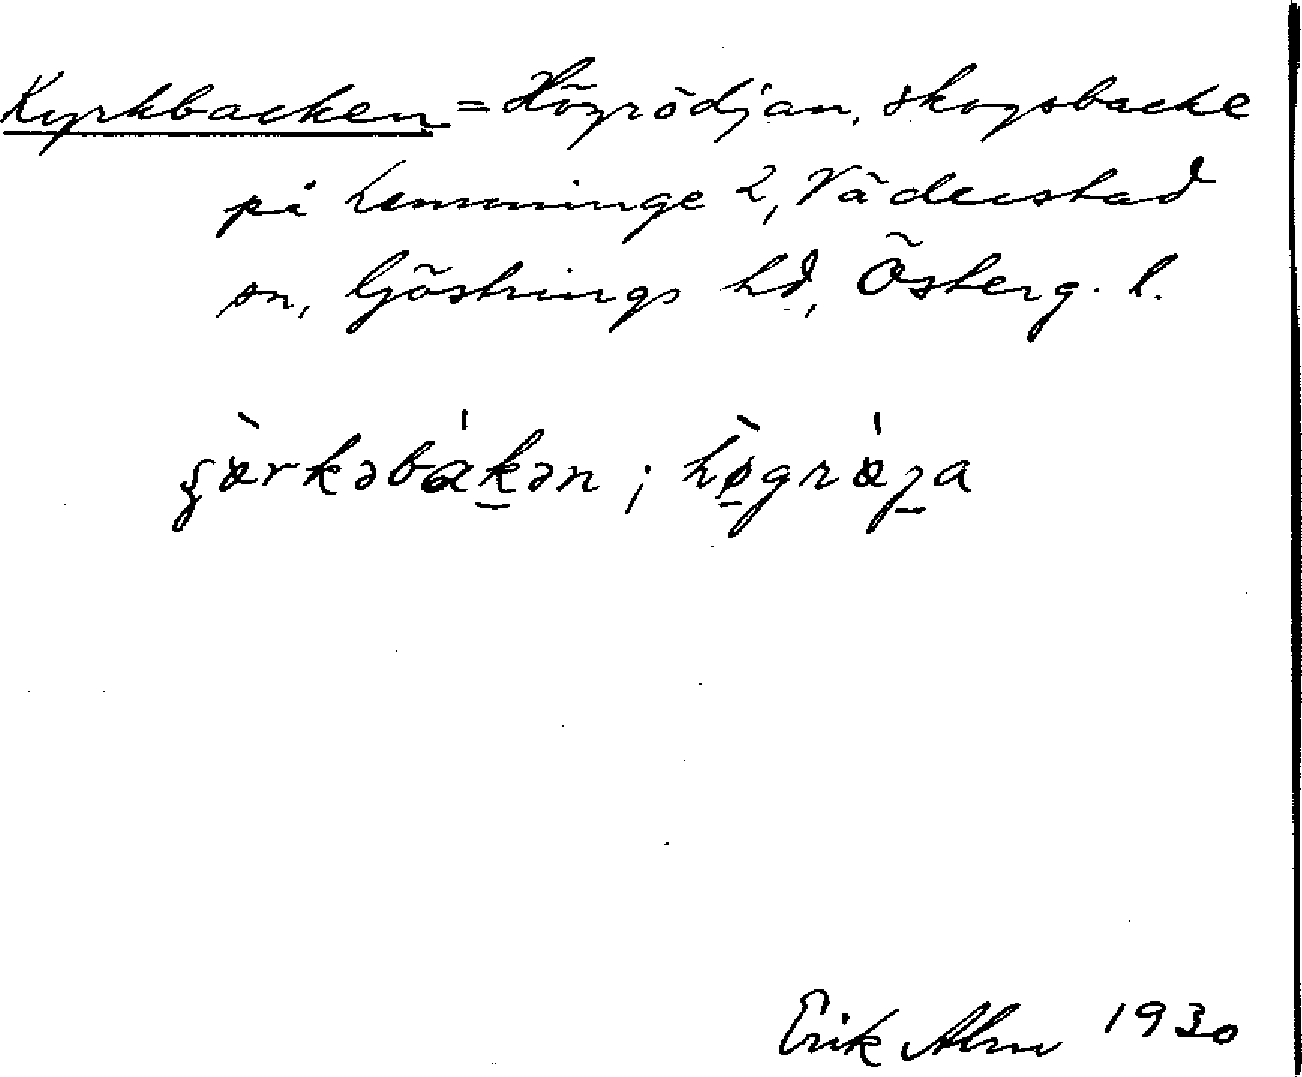 Kyrkbacken = Högrödjan, skogsbacke
på Lemminge 2, Väderstad
sn, Göstrings hd, Österg. l.
Erik Alm 1930